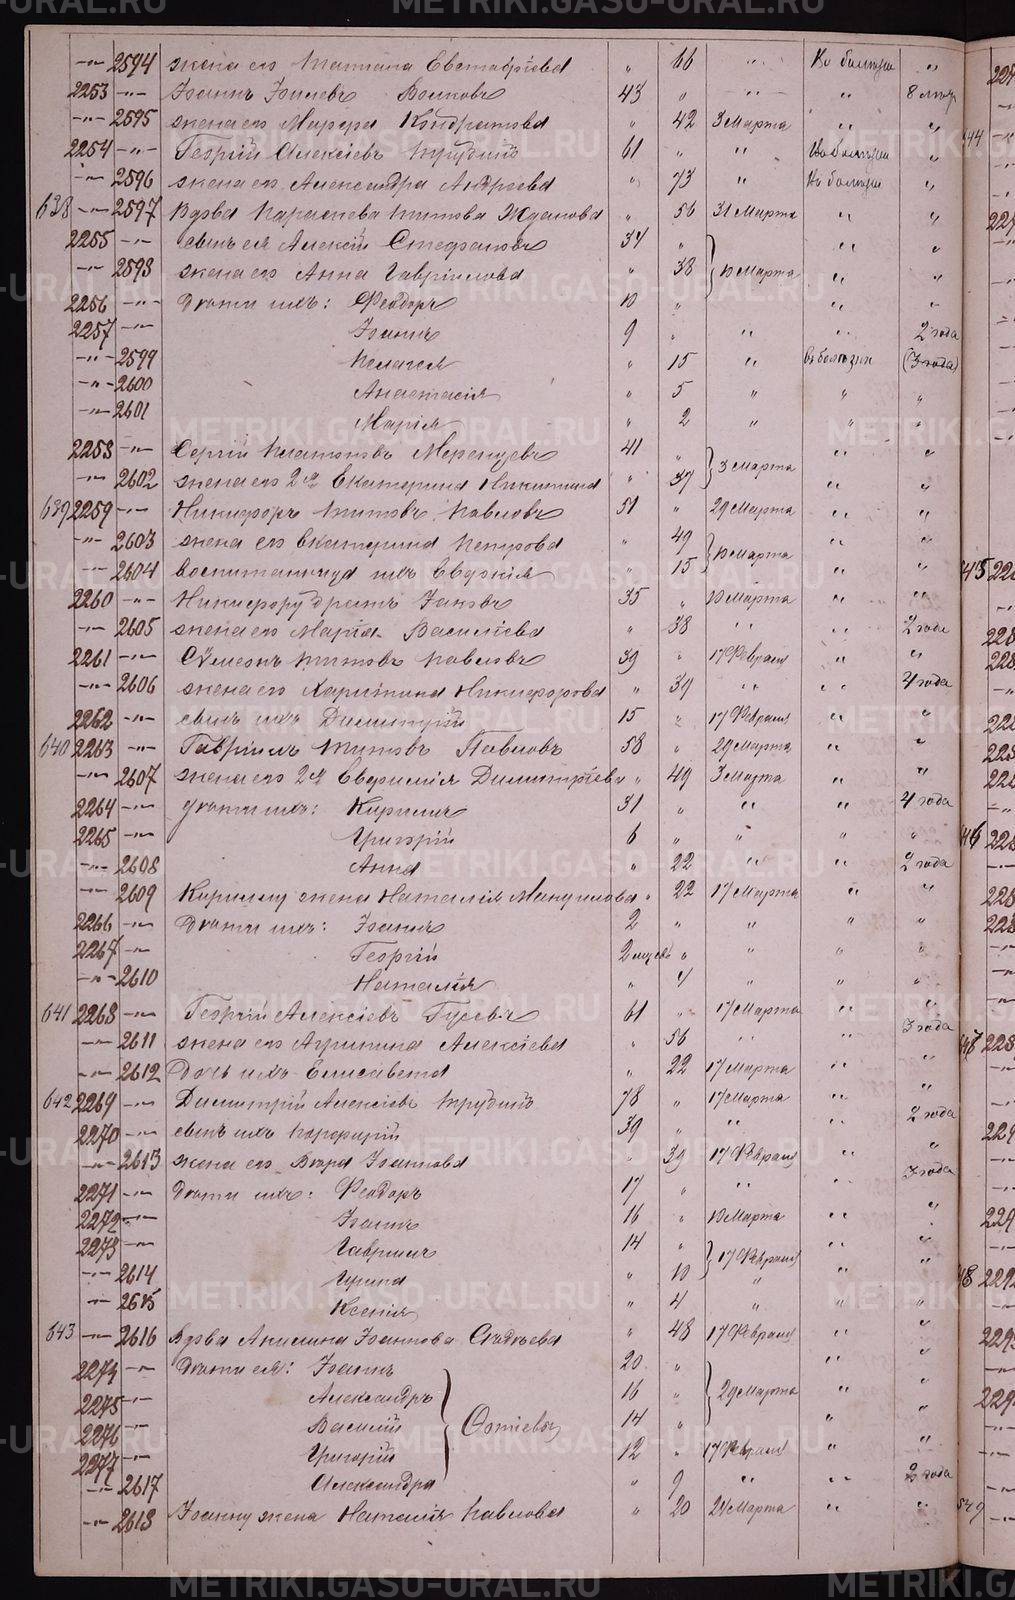 METRIKI.GASO-URAL.RU
-"- 2594 жена его Татиана Евстафіева " 66 " По болѣзни "
2253 -"- Іоаннъ Волковъ 43 " " "
-"- 2595 жена его Марфа Кондратова " 42 3 Марта " "
2254 -"- Георгій Алексіевъ 61 " " По болѣзни "
-"- 2596 жена его Александра Андреева " 73 " По болѣзни "
638 -"- 2597 Вдова Параскева Титова Жданова " 56 31 Марта " "
2255 -"- сынъ ея Алексій Стефановъ 34 " " "
-"- 2598 жена его Анна Гавріилова " 38 10 Марта " "
2256 -"- Дѣти ихъ: Феодоръ 10 " " "
2257 -"- Іоаннъ 9 " " " 2 года
-"- 2599 Пелагея " 15 " (3 года)
-"- 2600 Анастасія " 5 " " "
-"- 2601 Марія " 2 " " "
2258 -"- Сергій Платоновъ 41 " " "
-"- 2602 жена его 2я Екатерина Никитина " 37 3 Марта " "
639 2259 -"- Никифоръ Титовъ Павловъ 51 " 29 Марта " "
-"- 2603 жена его Екатерина Петрова " 49 " "
-"- 2604 воспитанница ихъ Евдокія " 15 10 Марта " "
2260 -"- Никифору братъ Іаковъ 35 " 10 Марта " "
-"- 2605 жена его Марія Васильева " 38 " " 2 года
2261 -"- Сѵмеонъ Титовъ Павловъ 39 " 17 Февраля " "
-"- 2606 жена его Харитина Никифорова " 39 " " 4 года
2262 -"- сынъ ихъ Димитрій 15 " 17 Февраля " "
640 2263 -"- Гавріилъ Титовъ Павловъ 58 " 29 Марта " "
-"- 2607 жена его 2я Евфимія Димитріева " 49 3 Марта " "
2264 -"- Дѣти ихъ: Кириллъ 31 " " " 4 года
2265 -"- Григорій 6 " " " "
-"- 2608 Анна " 22 " " 2 года
-"- 2609 Кириллу жена Наталія Мануилова " 22 17 Марта " "
2266 -"- Дѣти ихъ: Іоаннъ 2 " " " "
2267 -"- Георгій " " " "
-"- 2610 Наталія " 4 " " "
641 2268 -"- Георгій Алексіевъ Гусевъ 61 " 17 Марта " "
-"- 2611 жена его Агрипина Алексіева " 56 " " 3 года
-"- 2612 Дочь ихъ Елисавета " 22 17 Марта " "
642 2269 -"- Димитрій Алексіевъ 78 " 17 Марта " "
2270 -"- сынъ ихъ Порфирій 39 " " " 2 года
-"- 2613 жена его Іоаннова " 39 17 Февраля " "
2271 -"- Дѣти ихъ: Феодоръ 17 " " " 3 года
2272 -"- Іоаннъ 16 " 10 Марта " "
2273 -"- Гавріилъ 14 " 17 Февраля " "
-"- 2614 Ирина " 10 " " "
-"- 2615 Ксенія " 4 " " "
643 -"- 2616 Вдова Акилина Іоаннова " 48 17 Февраля " "
2274 -"- Дѣти ея: Іоаннъ 20 " " "
2275 -"- Александръ 16 " 29 Марта " "
2276 -"- Василій 14 " " "
2277 -"- Григорій 12 " 17 Февраля " "
-"- 2617 Александра " 9 " " 2 года
-"- 2618 Іоанну жена Наталія Павлова " 20 24 Марта " "